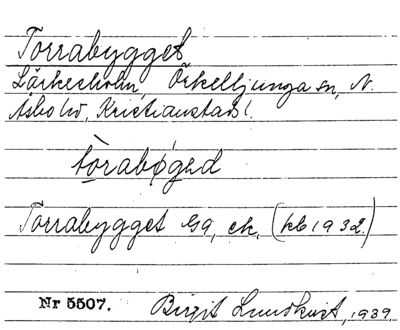 Torrabygget
Lärkesholm, Örkelljunga sn, N.
Åsbo hd, Kristianstads l.
tòrabýgəd
Torrabygget Gg, ek. (kb 1932)
Nr 5507. Birgit Lundkvist, 1939.